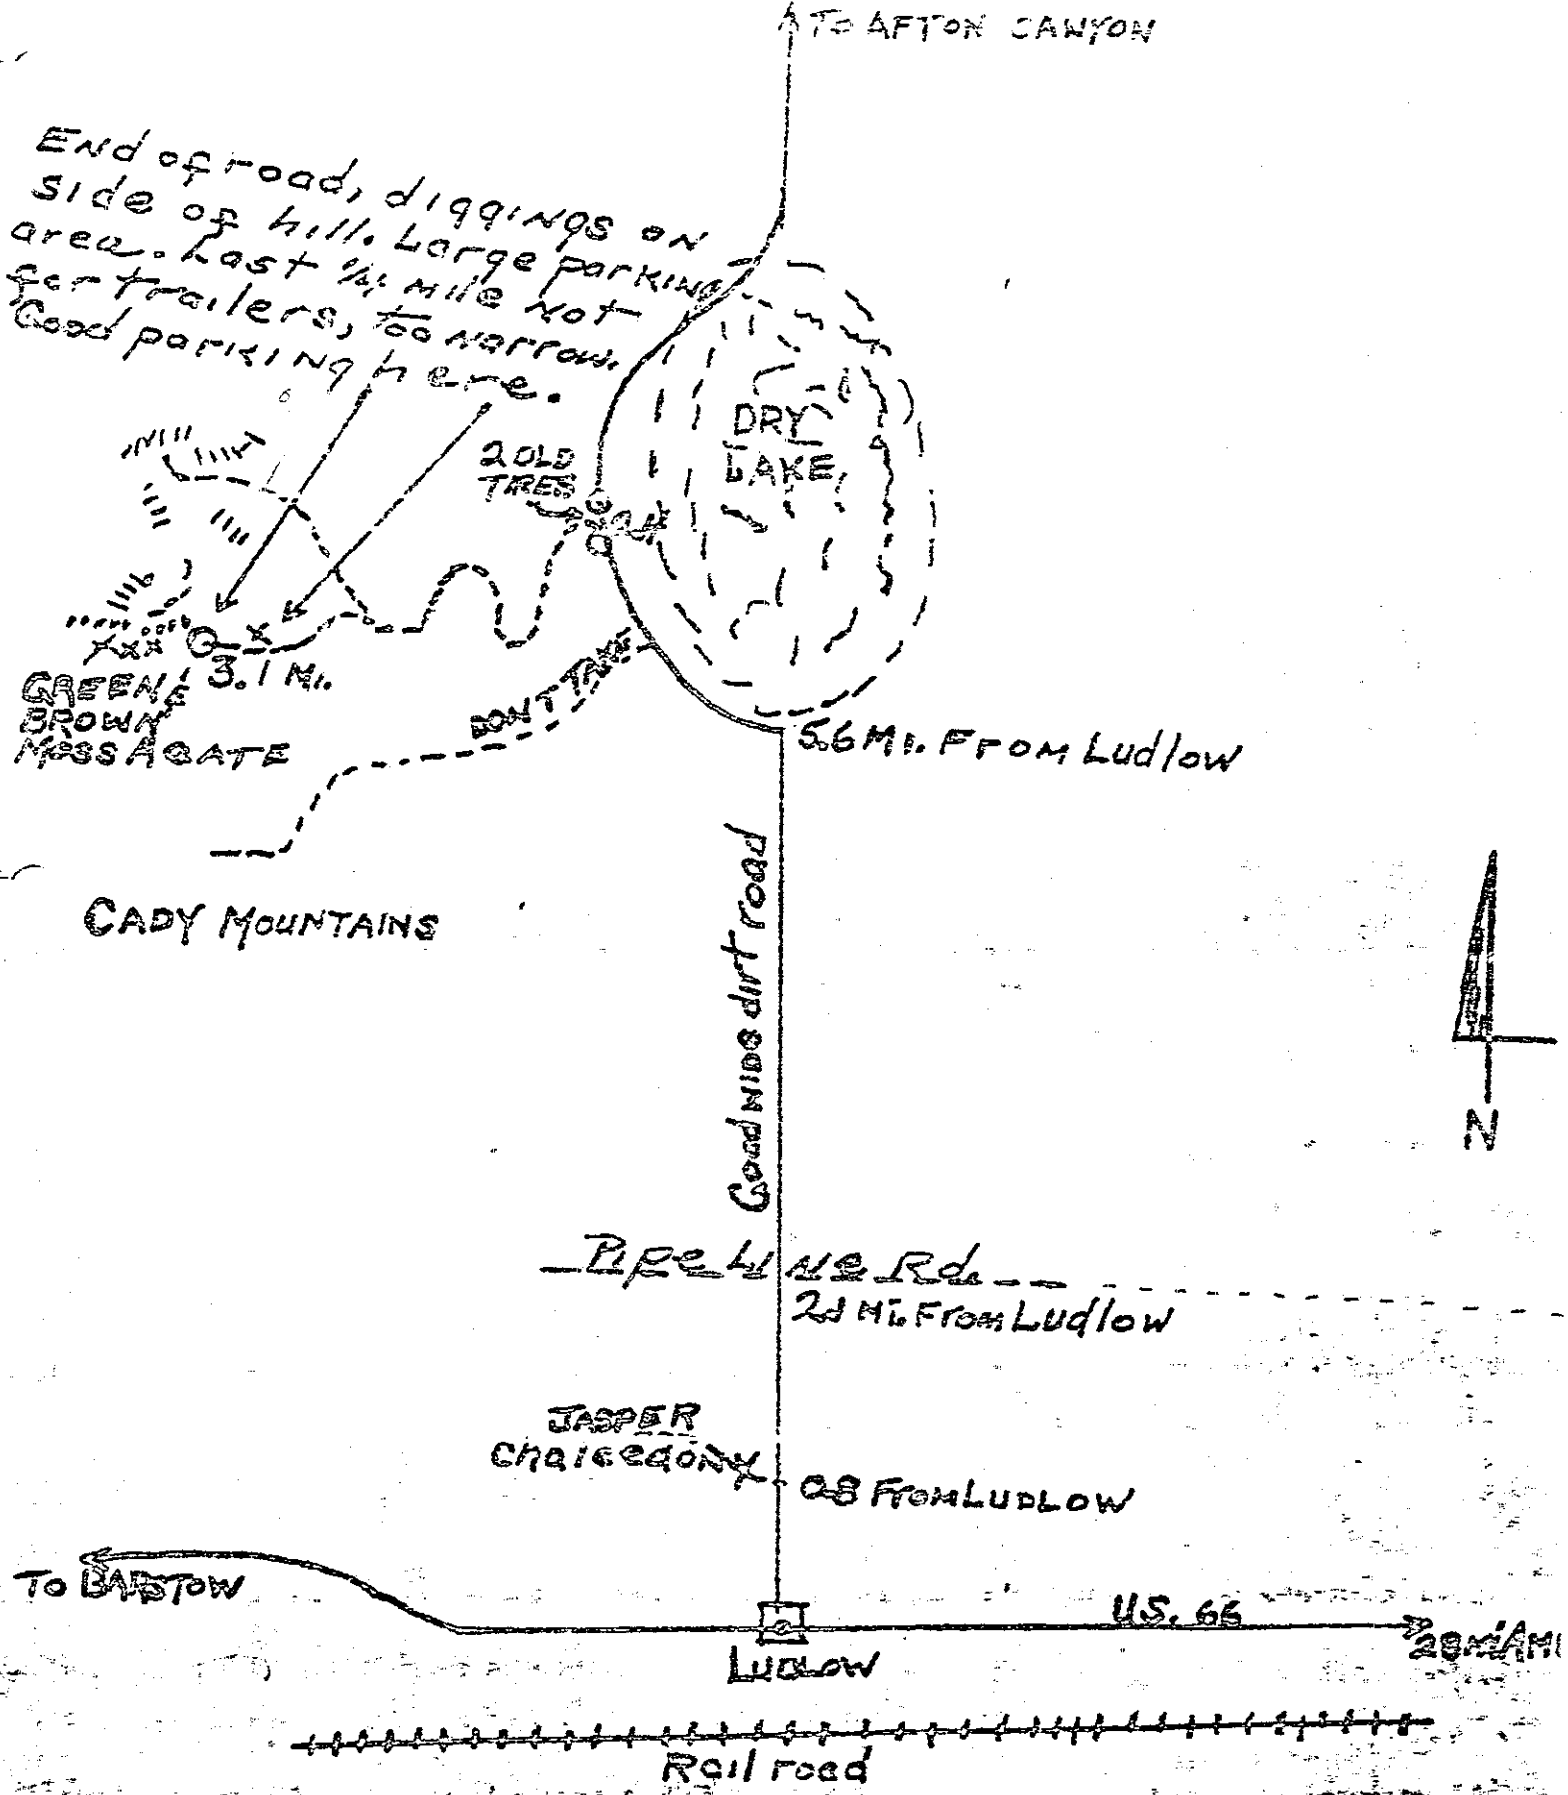 TO AFTON CANYON
End of road, diggings on
side of hill. Large parking
area. Last 1/4 mile not
for trailers, too narrow.
Good parking here.
2 OLD
TIRES
DRY
LAKE
3.1 Mi.
GREEN &
BROWN
MOSS AGATE
DON'T TAKE
5.6 MI. From Ludlow
CADY MOUNTAINS
Good WIDE dirt road
N
Pipe Line Rd.
Mi. From Ludlow
JASPER
Chalcedony X
0.8 FROM LUDLOW
TO BARSTOW
U.S. 66
LUDLOW
Rail road